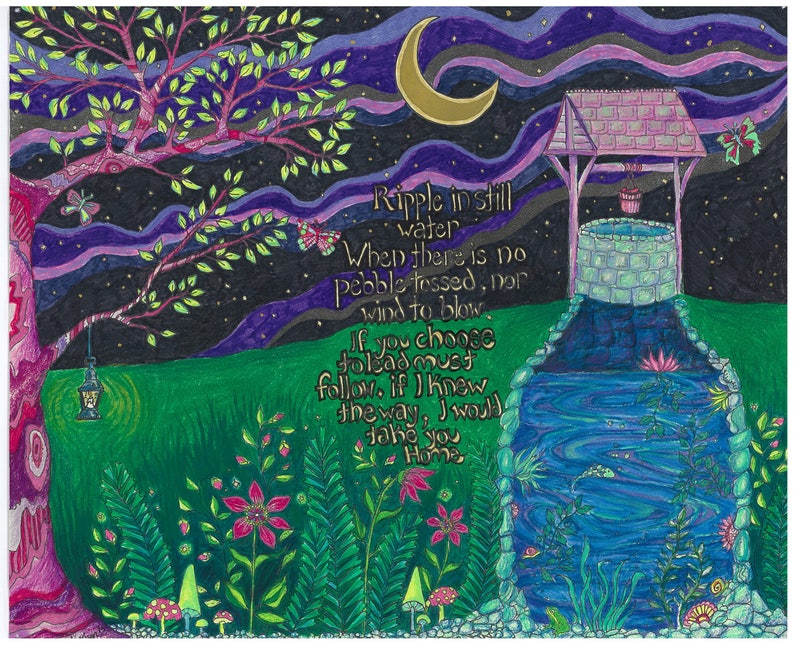 Ripple in still
water
When there is no
pebble tossed, nor
wind to blow.
If you choose
to lead must
follow, if I knew
the way, I would
take you
Home